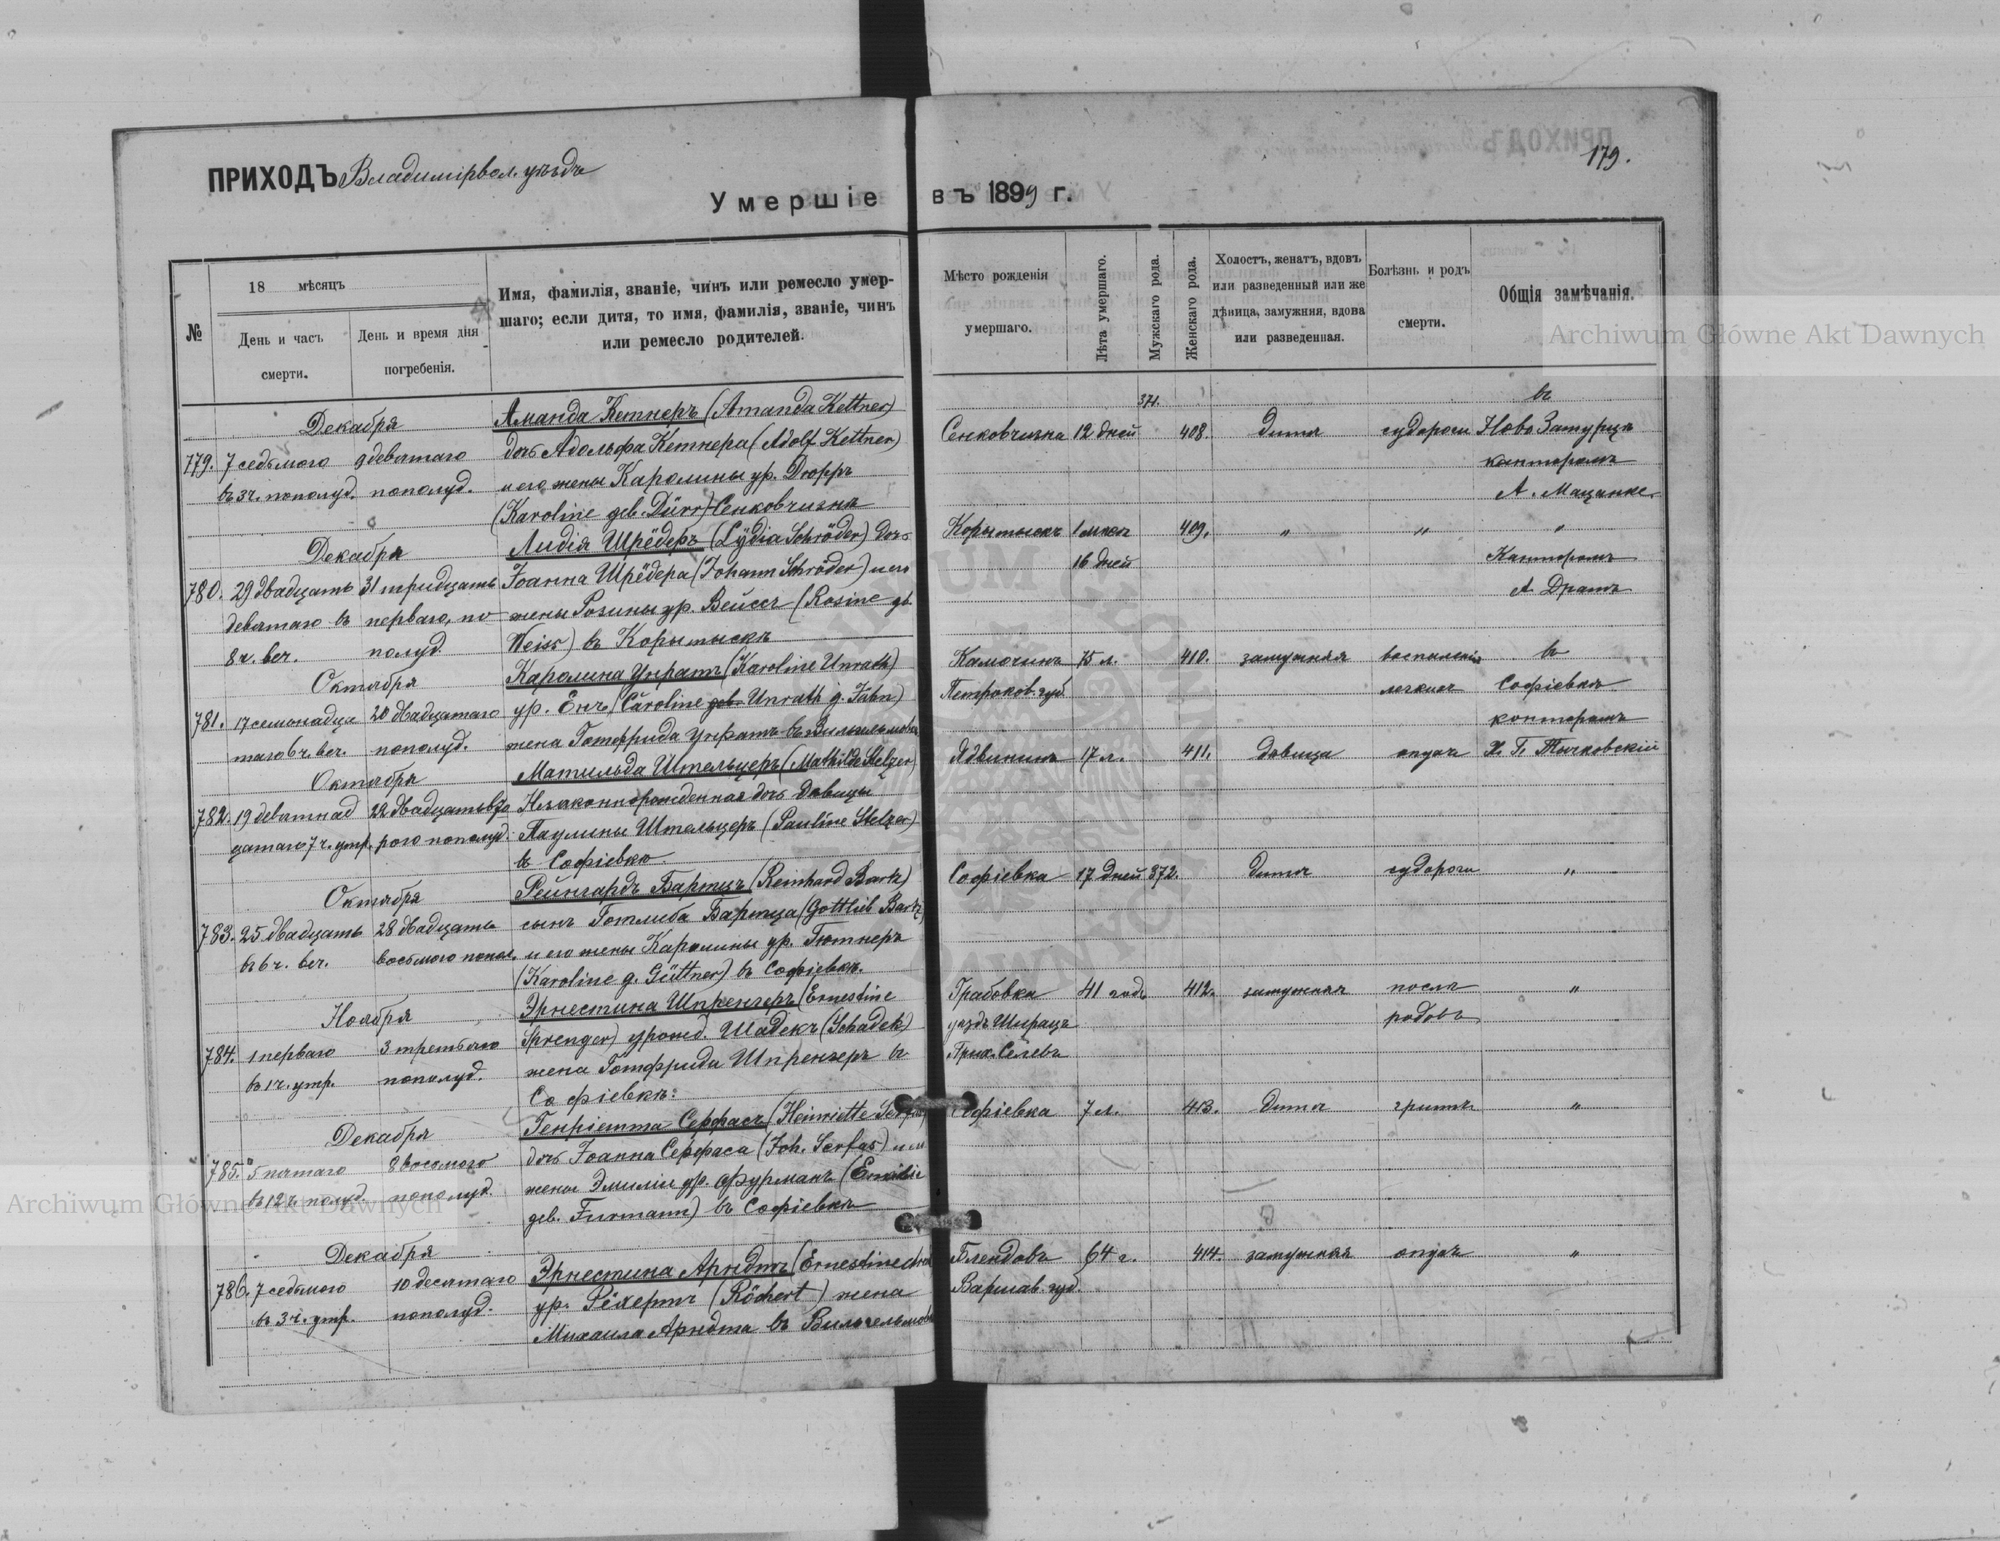 ПРИХОДЪ Владимірвол. уѣздъ
179.
Умершіе въ 1899 г.
№
18 мѣсяцъ
День и часъ смерти.
День и время дня погребенія.
Имя, фамилія, званіе, чинъ или ремесло умер-
шаго; если дитя, то имя, фамилія, званіе, чинъ
или ремесло родителей.
Мѣсто рожденія
умершаго.
Лѣта умершаго.
Мужскаго рода.
Женскаго рода.
Холостъ, женатъ, вдовъ
или разведенный или же
дѣвица, замужняя, вдова
или разведенная.
Болѣзнь и родъ
смерти.
Общія замѣчанія.
Archiwum Główne Akt Dawnych
371.
Декабря
779. 7 седьмого 9 девятаго
въ 3 ч. пополуд. пополуд.
Аманда Кетнеръ (Amanda Kettner)
дочь Адольфа Кетнера (Adolf Kettner)
и его жены Каролины ур. Дюрръ
(Karoline geb. Dürr) Сенковчизна
Сенковчизна 12 дней 408. дитя судороги
въ
Ново Затурцѣ
канторомъ
А.
Декабря
780. 29 двадцать 31 тридцать
девятаго въ перваго, по
8 ч. веч. полуд.
Лидія Шрёдеръ (Lydia Schröder) дочь
Іоанна Шрёдера (Johann Schröder) и его
жены Розины ур. Вейссъ (Rosine gb.
Weiss) въ Корытыскѣ
Корытыскъ 1 мѣсяц 409. " " "
16 дней
Канторомъ
А. Дратъ
Октября
781. 17 семонадца 20 двадцатаго
таго 6 ч. веч. пополуд.
Каролина Унратъ (Karoline Unrath)
ур. Енъ (Caroline geb. Unrath g. Jahn)
жена Готфрида Унратъ въ Вильгельмовкѣ
Камоцинъ 75 л. 410. замужняя воспаленіе
Петроков. губ. легкихъ
въ
Софіевкѣ
канторомъ
Октября
782. 19 девятнад 22 двадцать вто
цатаго 7 ч. утр. рого пополуд.
Матильда Штельцеръ (Mathilde Stelzer)
Незаконнорожденная дочь дѣвицы
Паулины Штельцеръ (Pauline Stelzer)
въ Софіевкѣ.
Ядвининъ 17 л. 411. дѣвица опухъ Х. Г. Тычковскій
Октября
783. 25 двадцать 28 двадцать
въ 6 ч. веч. восьмого попол.
Рейнгардъ Бартцъ (Reinhard Bartz)
сынъ Готлиба Бартца (Gottlieb Bartz)
и его жены Каролины ур. Гютнеръ
(Karoline g. Güttner) въ Софіевкѣ.
Софіевка 17 дней 372. дитя судороги "
Ноября
784. 1 перваго 3 третьяго
въ 1 ч. утр. пополуд.
Эрнестина Шпренгеръ (Ernestine
Sprenger) урожд. Шадекъ (Schadek)
жена Готфрида Шпренгеръ въ
Софіевкѣ:
Грабовка 41 годъ 412. замужняя послѣ "
уѣздъ Ширацъ родовъ
Декабря
785. 5 пятаго 8 восьмого
въ 12 ч. полуд. пополуд.
Генріетта Серфасъ (Heinriette Serfas)
дочь Іоанна Серфаса (Joh. Serfas) и его
жены Эмиліи ур. Фурманъ (Emilie
geb. Furmann) въ Софіевкѣ
Софіевка 7 л. 413. дитя грипъ "
Archiwum Główne Akt Dawnych
Декабря
786. 7 седьмого 10 десятаго
въ 3 ч. утр. пополуд.
Эрнестина Арндтъ (Ernestine
ур. Рёхертъ (Röchert) жена
Михаила Арндта въ Вильгельмовкѣ
Блендовъ 64 г. 414. замужняя опухъ "
Варшав. губ.